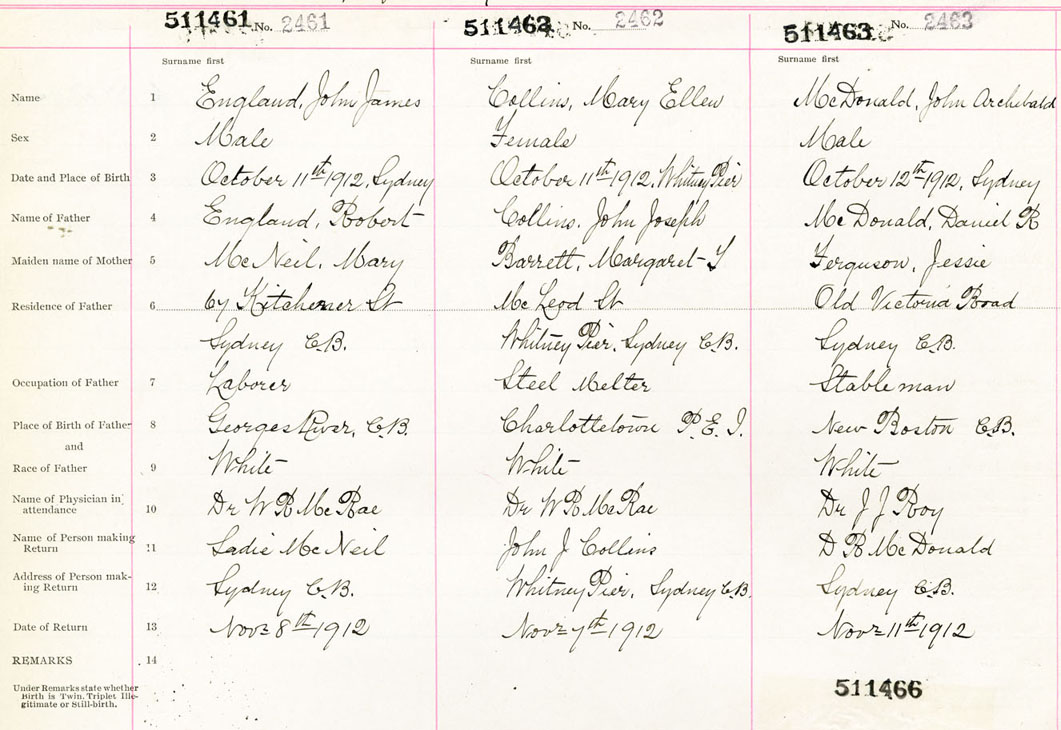 511461 No. 2461 511462 No. 2462 511463 No. 2463
Surname first Surname first Surname first
Name 1 England, John James Collins, Mary Ellen McDonald, John Archibald
Sex 2 Male Female Male
Date and Place of Birth 3 October 11th 1912, Sydney October 11th 1912, Whitney Pier October 12th 1912, Sydney
Name of Father 4 England, Robert Collins, John Joseph McDonald, Daniel R
Maiden name of Mother 5 McNeil, Mary Barrett, Margaret Ferguson, Jessie
Residence of Father 6 67 Kitchener St McLeod St Old Victoria Road
Sydney C.B. Whitney Pier, Sydney C.B. Sydney C.B.
Occupation of Father 7 Laborer Steel Melter Stableman
Place of Birth of Father 8 Georges River, C.B. Charlottetown P.E.I. New Boston C.B.
and
Race of Father 9 White White White
Name of Physician in
attendance 10 Dr W R McRae Dr W R McRae Dr J J Roy
Name of Person making
Return 11 Sadie McNeil John J Collins D R McDonald
Address of Person mak-
ing Return 12 Sydney C.B. Whitney Pier, Sydney C.B. Sydney C.B.
Date of Return 13 Novr 8th 1912 Novr 7th 1912 Novr 11th 1912
REMARKS 14
Under Remarks state whether
Birth is Twin, Triplet Ille-
gitimate or Still-birth.
511466